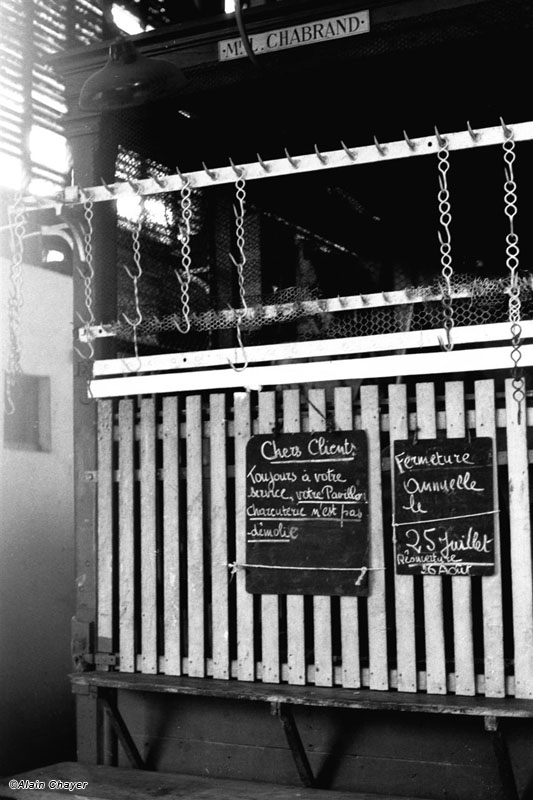 M.L. CHABRAND.
Chers Clients
Toujours à votre
service, votre Pavillon
Charcuterie n'est pas
démolie
Fermeture
Annuelle
le
25 Juillet
Réouverture
26 Août
©Alain Chayer